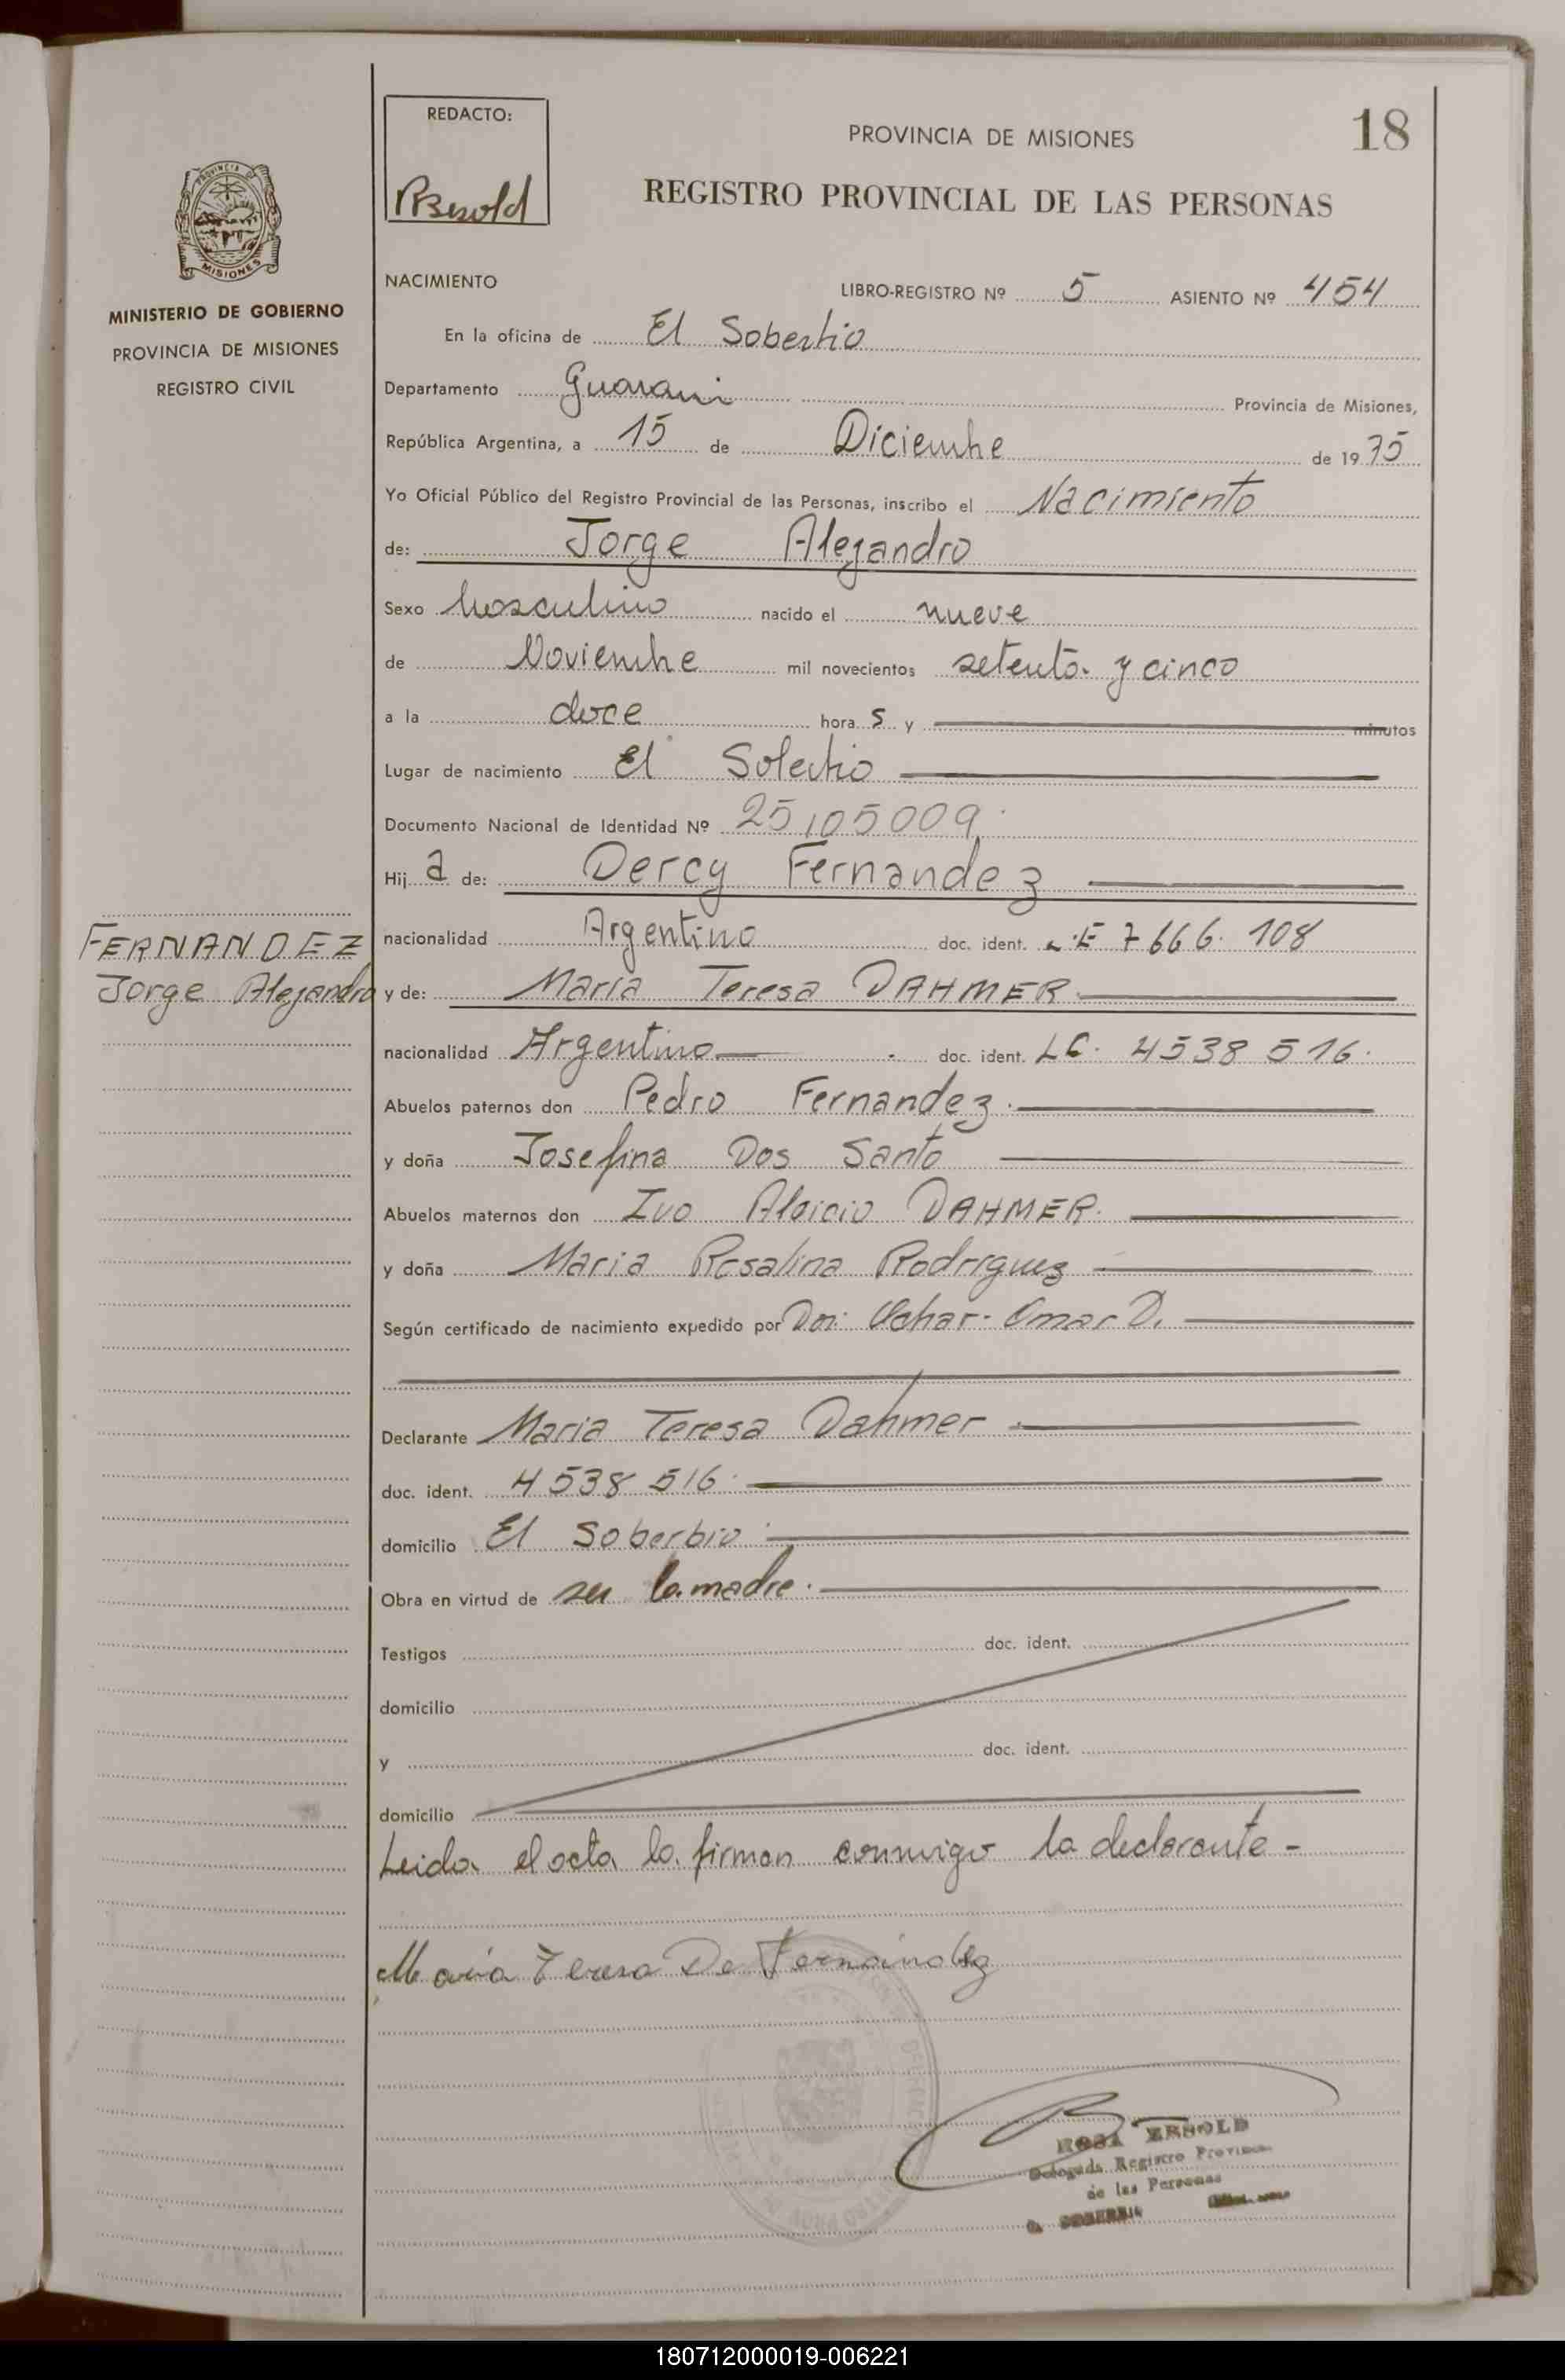 18
REDACTO:
PROVINCIA DE MISIONES
REGISTRO PROVINCIAL DE LAS PERSONAS
PROVINCIA
MISIONES
MINISTERIO DE GOBIERNO
PROVINCIA DE MISIONES
REGISTRO CIVIL
NACIMIENTO
LIBRO-REGISTRO Nº 5 ASIENTO Nº 454
En la oficina de El Soberbio
Departamento Guarani Provincia de Misiones,
República Argentina, a 15 de Diciembre de 1975
Yo Oficial Público del Registro Provincial de las Personas, inscribo el Nacimiento
de: Jorge Alejandro
Sexo Masculino nacido el nueve
de Noviembre mil novecientos setenta y cinco
a la doce hora s y minutos
Lugar de nacimiento El Soberbio
Documento Nacional de Identidad Nº 25105009
Hij a de: Dercy Fernandez
nacionalidad Argentino doc. ident. L.E 7666.108
FERNANDEZ
Jorge Alejandro
y de: María Teresa DAHMER
nacionalidad Argentino doc. ident. LC. 4538516.
Abuelos paternos don Pedro Fernandez.
y doña Josefina Dos Santo
Abuelos maternos don Ivo Aloicio DAHMER.
y doña Maria Rosalina Rodriguez
Según certificado de nacimiento expedido por Omar D.
Declarante Maria Teresa Dahmer
doc. ident. 4538516.
domicilio El Soberbio
Obra en virtud de ser la madre.
Testigos doc. ident.
domicilio
y doc. ident.
domicilio
Leida el acta la firman conmigo la declarante -
María Teresa De Fernández
ROSA BESOLD
Delegada Registro Provincial
de las Personas
180712000019-006221